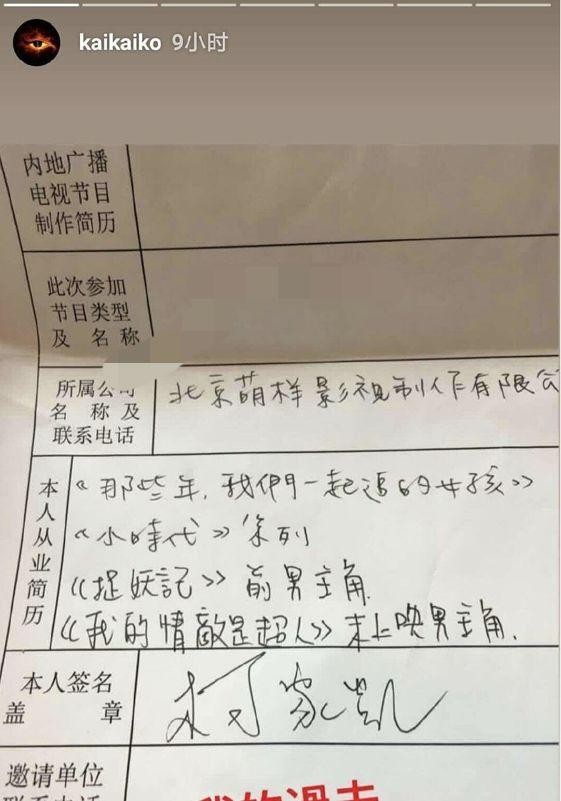 kaikaiko 9小时
内地广播
电视节目
制作简历
此次参加
节目类型
及 名 称
所属公司
名 称及
联系电话
北京萌样影視制作有限公
本人从业简历
《那些年,我們一起追的女孩》
《小時代》系列
《捉妖記》前男主角
《我的情敵是超人》未上映男主角.
本人签名
盖 章
柯家凱
邀请单位
联系电话